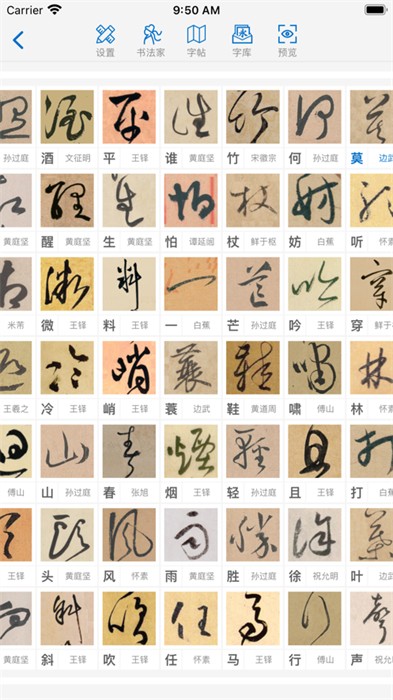 Carrier 9:50 AM
设置 书法家 字帖 字库 预览
孙过庭 酒 文征明 平 王铎 谁 黄庭坚 竹 宋徽宗 何 孙过庭 莫 边武
黄庭坚 醒 孙过庭 生 黄庭坚 怕 谭延闿 杖 鲜于枢 妨 白蕉 听 怀素
米芾 微 王铎 料 王铎 一 白蕉 芒 孙过庭 吟 王铎 穿 鲜于
王羲之 冷 王铎 峭 王铎 蓑 边武 鞋 黄道周 啸 傅山 林 怀素
傅山 山 孙过庭 春 张旭 烟 王铎 轻 孙过庭 且 王铎 打 白蕉
王铎 头 黄庭坚 风 怀素 雨 黄庭坚 胜 孙过庭 徐 祝允明 叶 边武
黄庭坚 斜 王铎 吹 王铎 任 怀素 马 王铎 行 傅山 声 祝允